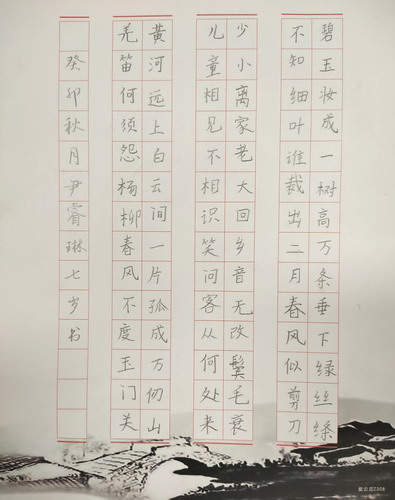 碧玉妆成一树高万条垂下绿丝绦
不知细叶谁裁出二月春风似剪刀
少小离家老大回乡音无改鬓毛衰
儿童相见不相识笑问客从何处来
黄河远上白云间一片孤成万仞山
羌笛何须怨杨柳春风不度玉门关
癸卯秋月尹睿琳七岁书